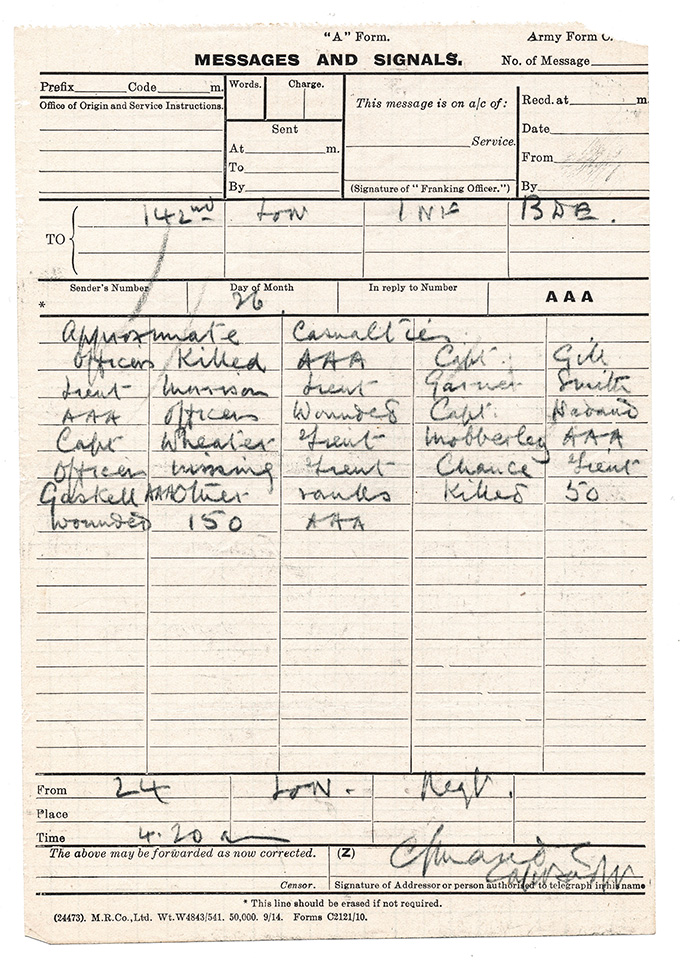 "A" Form. Army Form C.
MESSAGES AND SIGNALS. No. of Message
Prefix Code m. Words. Charge. This message is on a/c of: Recd. at m
Office of Origin and Service Instructions.
Sent
At m. Service. Date
To From
By (Signature of "Franking Officer.") By
TO 142nd LON INF BDE.
Sender's Number Day of Month In reply to Number AAA
* 26
Approximate Casualties
Officers Killed AAA Capt. Gill
Lieut Morrison Lieut Garner Smith
AAA Officers Wounded Capt.
Capt Wheater Lieut Mobberley AAA
Officers missing Lieut Chance Lieut
Gaskell AAA Other ranks Killed 50
Wounded 150 AAA
From 24 LON. Regt.
Place
Time 4.20 a
The above may be forwarded as now corrected. (Z)
Censor. Signature of Addressor or person authorised to telegraph in his name
* This line should be erased if not required.
(24473). M.R.Co.,Ltd. Wt.W4843/541. 50,000. 9/14. Forms C2121/10.